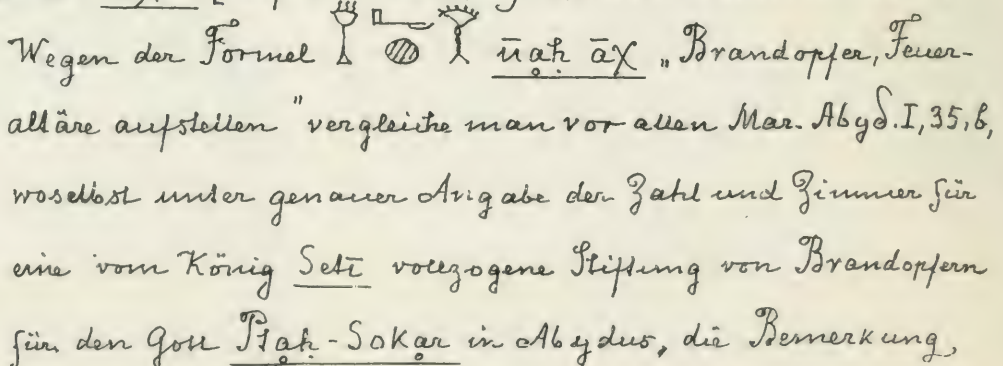 Wegen der Formel ūaḥ āχ „Brandopfer, Feuer-
altäre aufstellen" vergleiche man vor allen Mar. Abyd. I, 35, b,
woselbst unter genauer Angabe der Zahl und Zimmer für
eine vom König Setī vollzogene Stiftung von Brandopfern
für den Gott Ptaḥ-Sokar in Abydus, die Bemerkung,